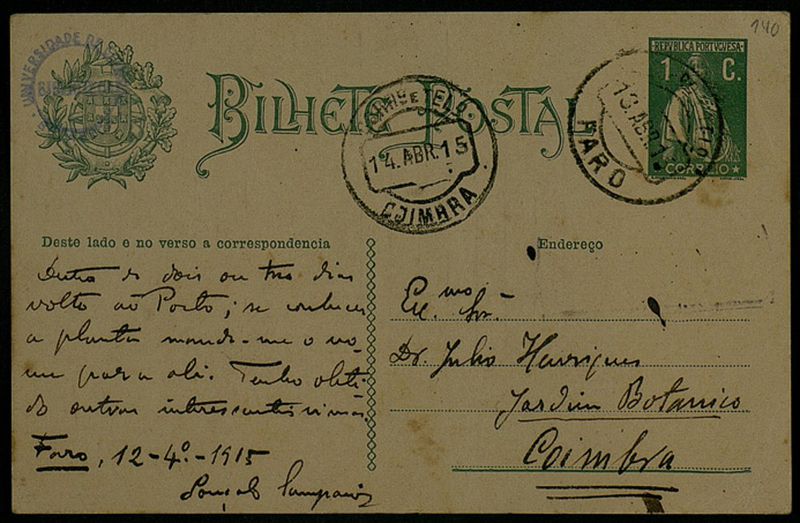 140
REPUBLICA PORTUGUESA
1 C.
CORREIO
UNIVERSIDADE DE
BILHETE POSTAL
CORREIO E TELO
14.ABR.15
COIMBRA
13.ABR.1
FARO
Deste lado e no verso a correspondencia
Endereço
Dentro de dois ou tres dias
volto ao Porto; se conhecer
a planta mande-me o no-
me para ali. Tenho obti-
do outras interessantissimas.
Faro, 12-4º-1915
Gonçalo Sampaio
Exmo Snr.
Dr. Julio Henriques
Jardim Botanico
Coimbra